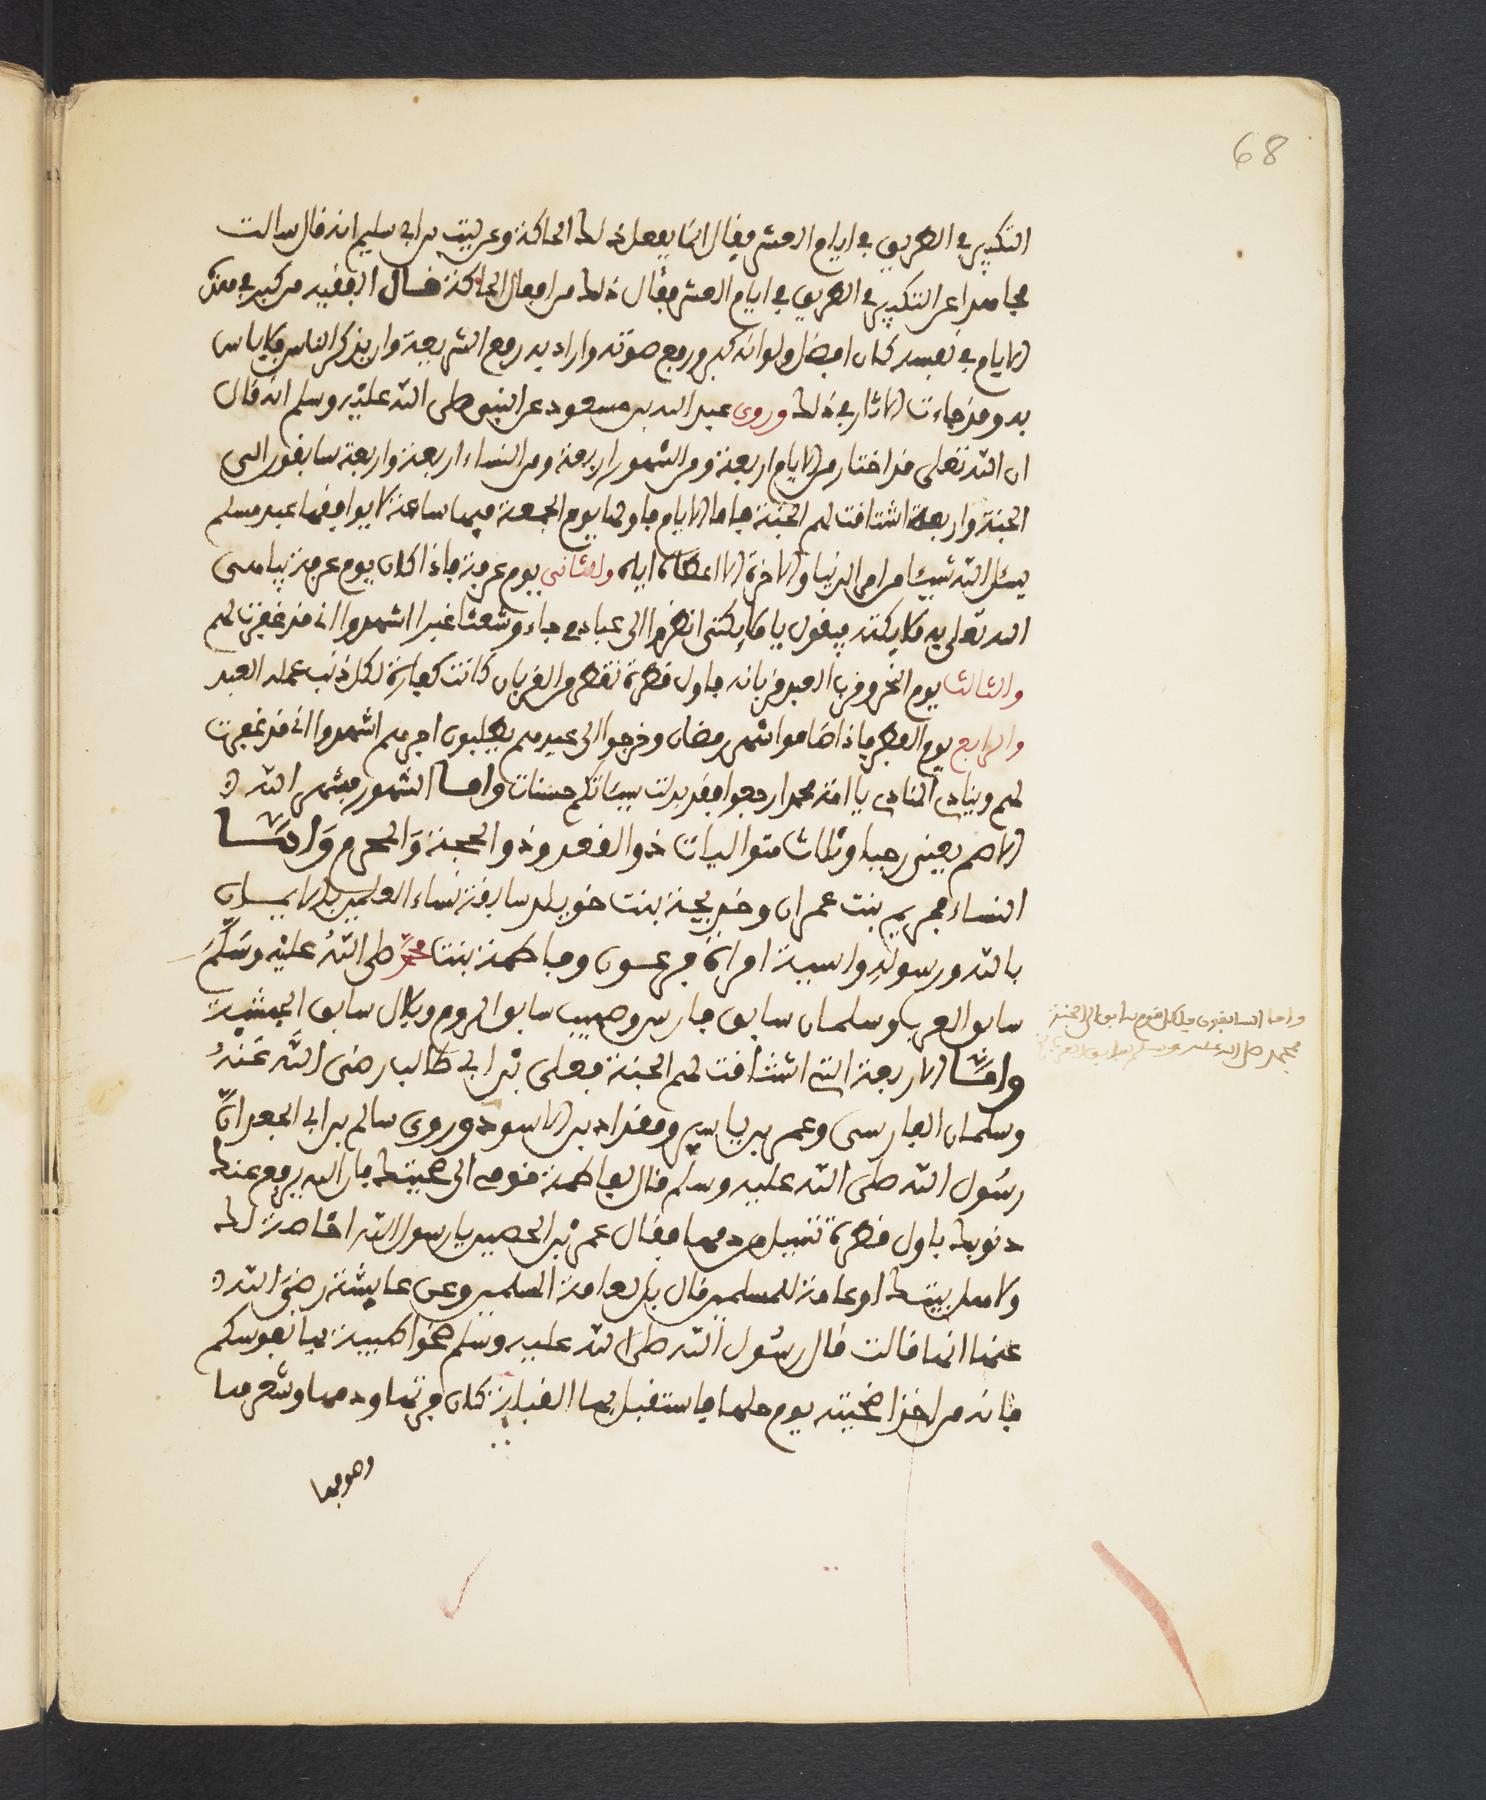 68
التكبير في الطريق في ايام العشر فقال انما يفعل ذلك الحاكة وعن ليث بن ابي سليم انه قال سالت
مجاهدا عن التكبير في الطريق في ايام العشر فقال ذلك من افعال الحاكة قال الفقيه من كبر في هذه
الايام في نفسه كان افضل ولو انه كبر ورفع صوته واراد به رفع الشريعة وان يذكر الناس فلا باس
به وقد جاءت الاثار في ذلك وروى عبد الله بن مسعود عن النبي صلى الله عليه وسلم انه قال
ان الله تعلى قد اختار من الايام اربعة ومن الشهور اربعة ومن النساء اربعة واربعة سابقون الى
الجنة واربعة اشتاقت لهم الجنة فاما الايام فاولها يوم الجمعة فيها ساعة لا يوافقها عبد مسلم
يسئل الله شيئا من امر الدنيا والاخرة الا اعطاه اياه والثاني يوم عرفة فاذا كان يوم عرفة يباهى
الله تعلى به ملايكته فيقول يا ملايكتي انظروا الى عبادي جاءو شعثا غبرا اشهدوا اني قد غفرت لهم
والثالث يوم النحر وقرب العبد قربانه فاول قطرة تقطر من القربان كانت كفارة لكل ذنب عمله العبد
والرابع يوم الفطر فاذا صاموا شهر رمضان وخرجوا الى عيدهم يطلبون اجرهم اشهدوا اني قد غفرت
لهم وينادي المنادي يا امة محمد ارجعوا فقد بدلت سيئاتكم حسنات واما الشهور فشهر الله
الاصم يعني رجبا وثلاث متواليات ذو القعدة وذو الحجة والمحرم واما
النساء فمريم بنت عمران وخديجة بنت خويلد سابقة نساء العلمين بالايمان
بالله ورسوله واسية امراة فرعون وفاطمة بنت محمد صلى الله عليه وسلم
سابق العرب وسلمان سابق فارس وصهيب سابق الروم وبلال سابق الحبشة
واما الاربعة التي اشتاقت لهم الجنة فعلى بن ابي طالب رضى الله عنه
وسلمان الفارسى وعمر بن ياسر ومقداد بن الاسود وروى سالم بن ابي الجعد ان
رسول الله صلى الله عليه وسلم قال لفاطمة قومي الى ضحيتك فان الله يرفع عنك
ذنوبك باول قطرة تسيل من دمها فقال عمرن بن الحصين يا رسول الله اخاصة لك
ولاهل بيتك او عامة للمسلمين قال بل لعامة المسلمين وعن عايشة رضي الله
عنها انها قالت قال رسول الله صلى الله عليه وسلم ضحوا طيبة بها نفوسكم
فانه من اخذ اضحيته يوم حلها فاستقبل بها القبلة كان فرثها ودمها وشعرها
وهو فيما
واما السابقون فلكل قوم سابق الى الجنة
محمد صلى الله عليه وسلم سابق العرب